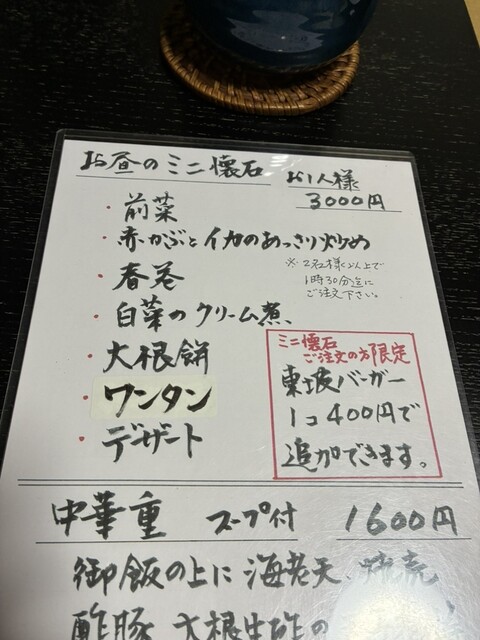 お昼のミニ懐石 お1人様
3000円
・前菜
・赤かぶとイカのあっさり炒め
※2名様以上で
1時30分迄に
ご注文下さい。
・春巻
・白菜のクリーム煮、
・大根餅
・ワンタン
・デザート
ミニ懐石
ご注文の方限定
東坡バーガー
1コ400円で
追加できます。
中華重 スープ付 1600円
御飯の上に海老天、焼売
酢豚 大根